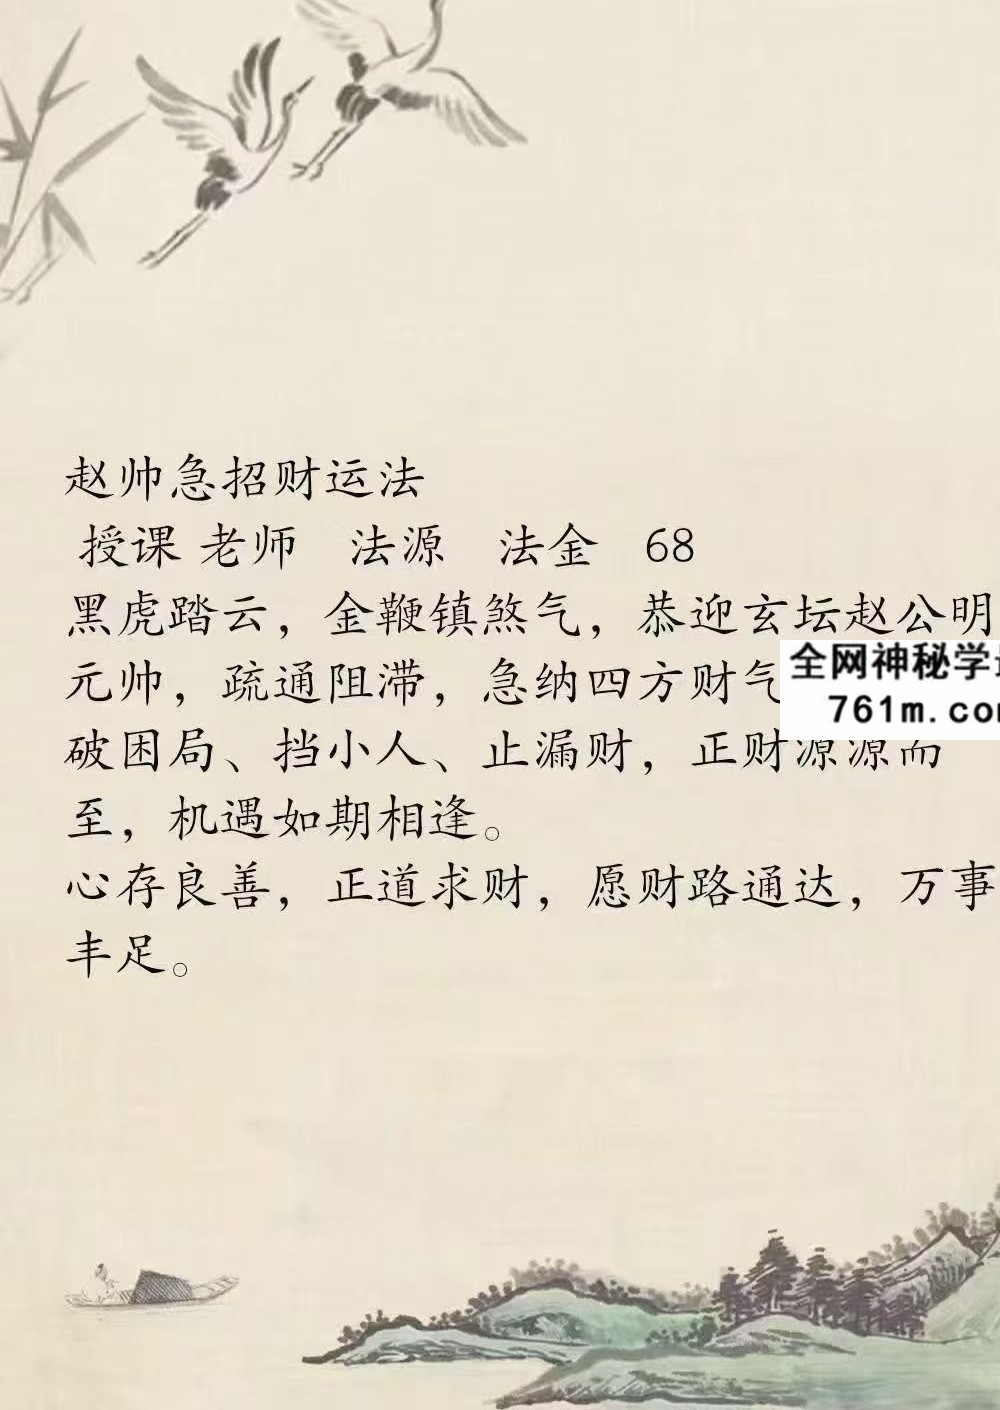 赵帅急招财运法
授课 老师 法源 法金 68
黑虎踏云，金鞭镇煞气，恭迎玄坛赵公明
元帅，疏通阻滞，急纳四方财气
全网神秘学
761m.co
破困局、挡小人、止漏财，正财源源而
至，机遇如期相逢。
心存良善，正道求财，愿财路通达，万事
丰足。